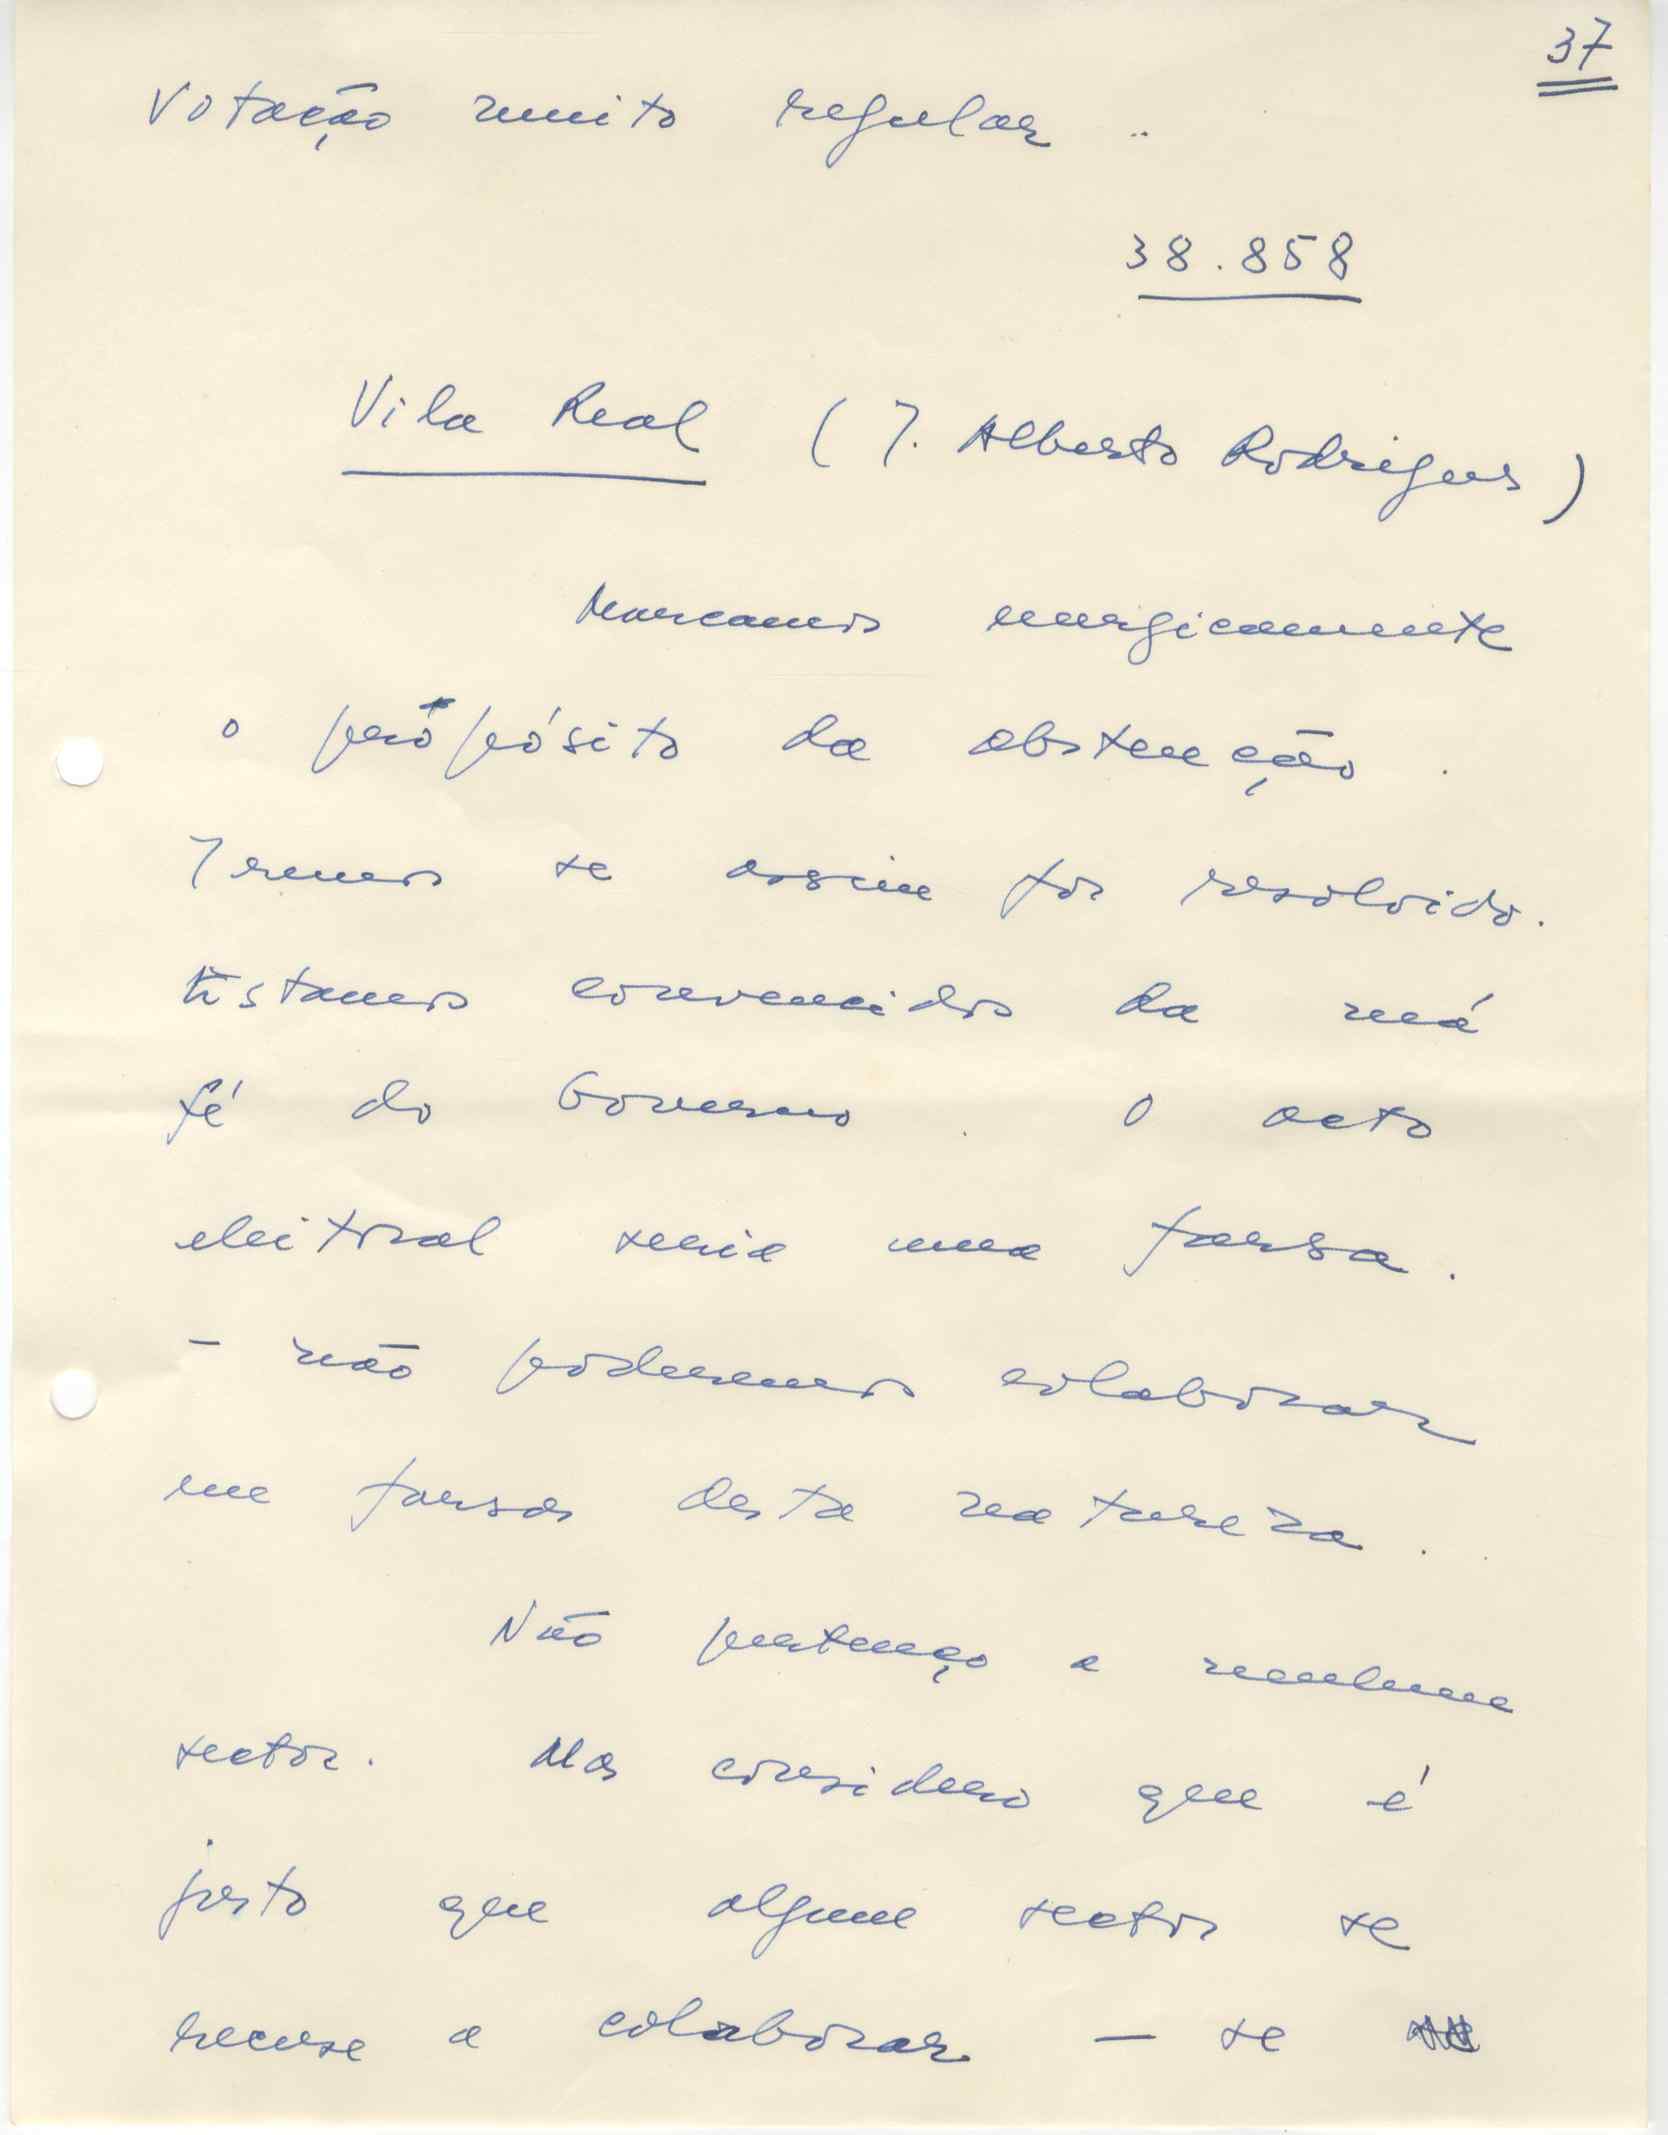 37
Votação muito regular ..
38.858
Vila Real (J. Alberto Rodrigues)
Marcamos energicamente
o própósito da abstenção.
Iremos se assim for resolvido.
Estamos convencidos da má
fé do Governo. O acto
eleitoral seria uma farsa.
- não podemos colaborar
em farsas desta natureza.
Não pertenço a nenhum
sector. Mas considero que é
justo que algum sector se
recuse a colaborar — se